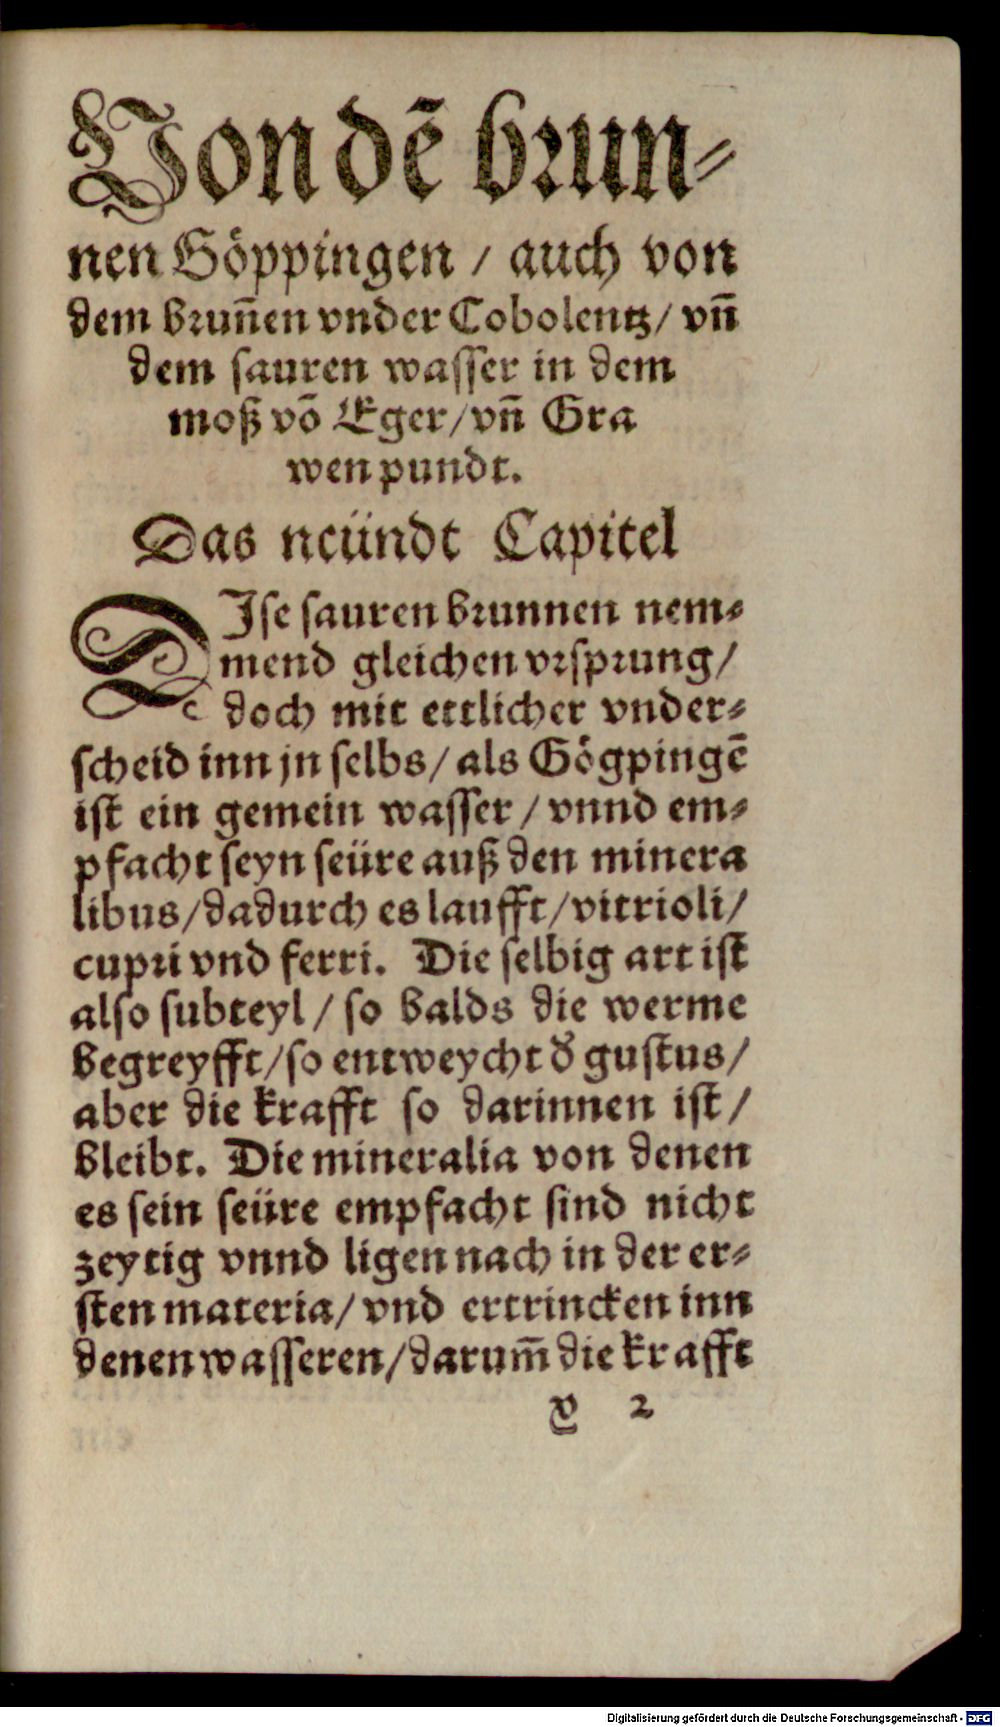 Von dē brun⸗
nen Göppingen / auch von
dem brun̄en vnder Cobolentz / vn̄
dem sauren wasser in dem
moß vō Eger / vn̄ Gra
wen pundt.
Das neündt Capitel
DIse sauren brunnen nem⸗
mend gleichen vrsprung /
doch mit ettlicher vnder⸗
scheid inn jn selbs / als Gögpingē
ist ein gemein wasser / vnnd em⸗
pfacht seyn seüre auß den minera
libus / dadurch es laufft / vitrioli /
cupri vnd ferri. Die selbig art ist
also subteyl / so balds die werme
begreyfft / so entweycht d̄ gustus /
aber die krafft so darinnen ist /
bleibt. Die mineralia von denen
es sein seüre empfacht sind nicht
zeytig vnnd ligen nach in der er⸗
sten materia / vnd ertrincken inn
denen wasseren / darum̄ die krafft
v 2
Digitalisierung gefördert durch die Deutsche Forschungsgemeinschaft - DFG